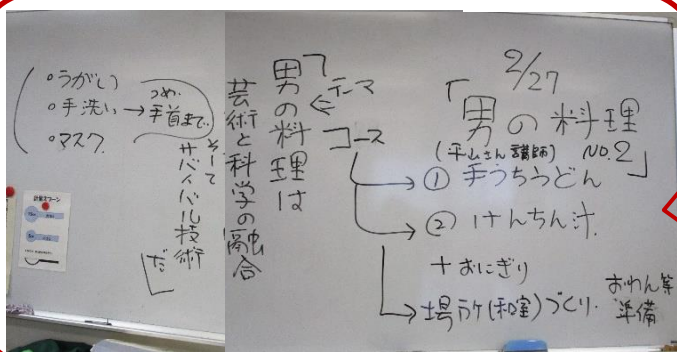 2/27
「男の料理
(平山さん講師) NO.2」
コース
① 手うちうどん
② けんちん汁
+おにぎり
場所(和室)づくり.
おわん等
準備
テーマ
「男の料理は
芸術と科学の融合
そして
サバイバル技術
だ」
・うがい
・手洗い→
つめ、
手首まで.
・マスク
計量スプーン